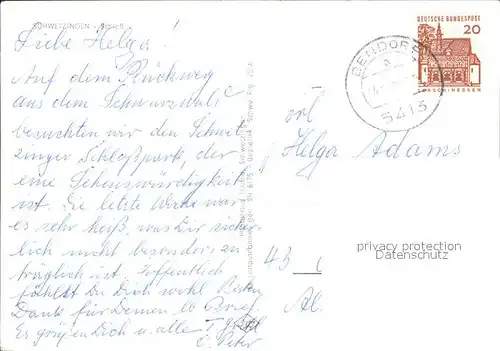 SCHWETZINGEN - Schloß
Liebe Helga!
Auf dem Rückweg
aus dem Schwarzwald
besuchten wir den Schwet
zinger Schloßpark, der
eine Sehenswürdigkeit
ist. Die letzte Woche war
es sehr heiß, was Dir sicher
lich nicht besonders zu
träglich ist. Hoffentlich
fühlst Du Dich wohl. Besten
Dank für Deinen lb Brief.
Es grüßen Dich u. alle
u. Peter
DEUTSCHE BUNDESPOST
20
LORSCH/HESSEN
BENDORF
a
5413
Helga Adams
43
privacy protection
Datenschutz